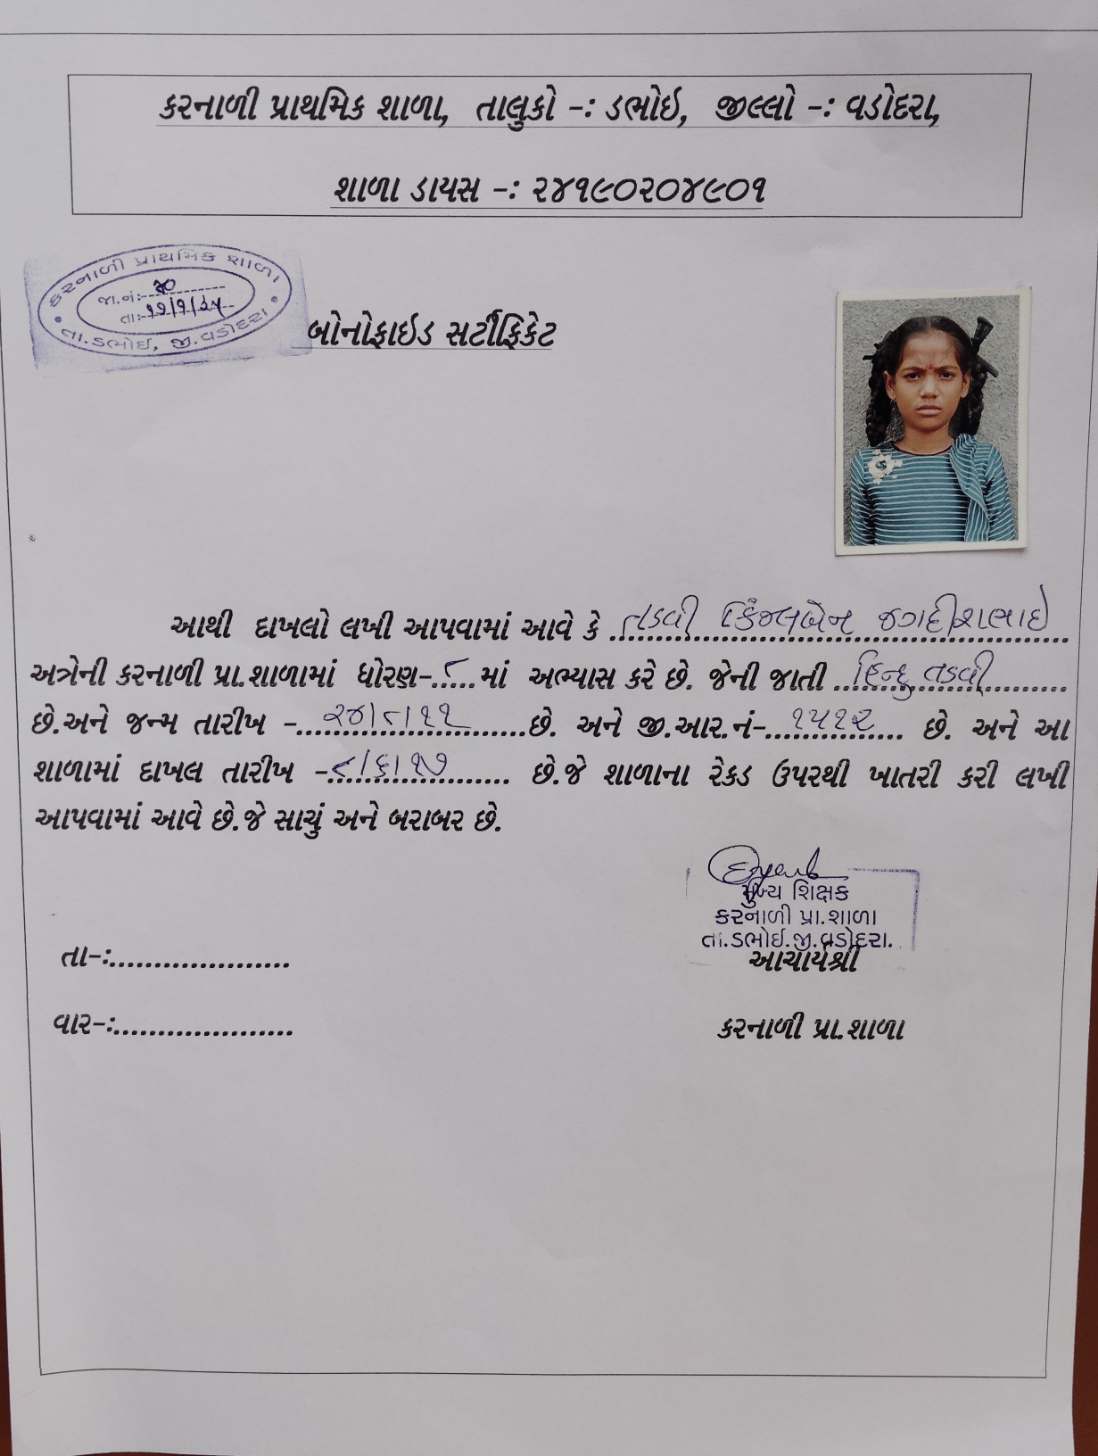 કરનાળી પ્રાથમિક શાળા, તાલુકો -: ડભોઇ, જીલ્લો -: વડોદરા,
શાળા ડાયસ -: ૨૪૧૯૦૨૦૪૯૦૧
કરનાળી પ્રાથમિક શાળા
જા.નં:-
તા:-
તા.ડભોઈ, જી.વડોદરા
બોનોફાઇડ સર્ટીફિકેટ
આથી દાખલો લખી આપવામાં આવે કે તડવી કિંજલબેન જગદીશભાઇ
અત્રેની કરનાળી પ્રા.શાળામાં ધોરણ-૮ માં અભ્યાસ કરે છે. જેની જાતી હિન્દુ તડવી
છે.અને જન્મ તારીખ - ૨૪/૮/૧૧ છે. અને જી.આર.નં- ૧૫૧૨ છે. અને આ
શાળામાં દાખલ તારીખ - ૮/૬/૧૭ છે.જે શાળાના રેકડ ઉપરથી ખાતરી કરી લખી
આપવામાં આવે છે.જે સાચું અને બરાબર છે.
મુખ્ય શિક્ષક
કરનાળી પ્રા.શાળા
તા.ડભોઈ.જી.વડોદરા.
તા-:....................
આચાર્યશ્રી
વાર-:....................
કરનાળી પ્રા.શાળા